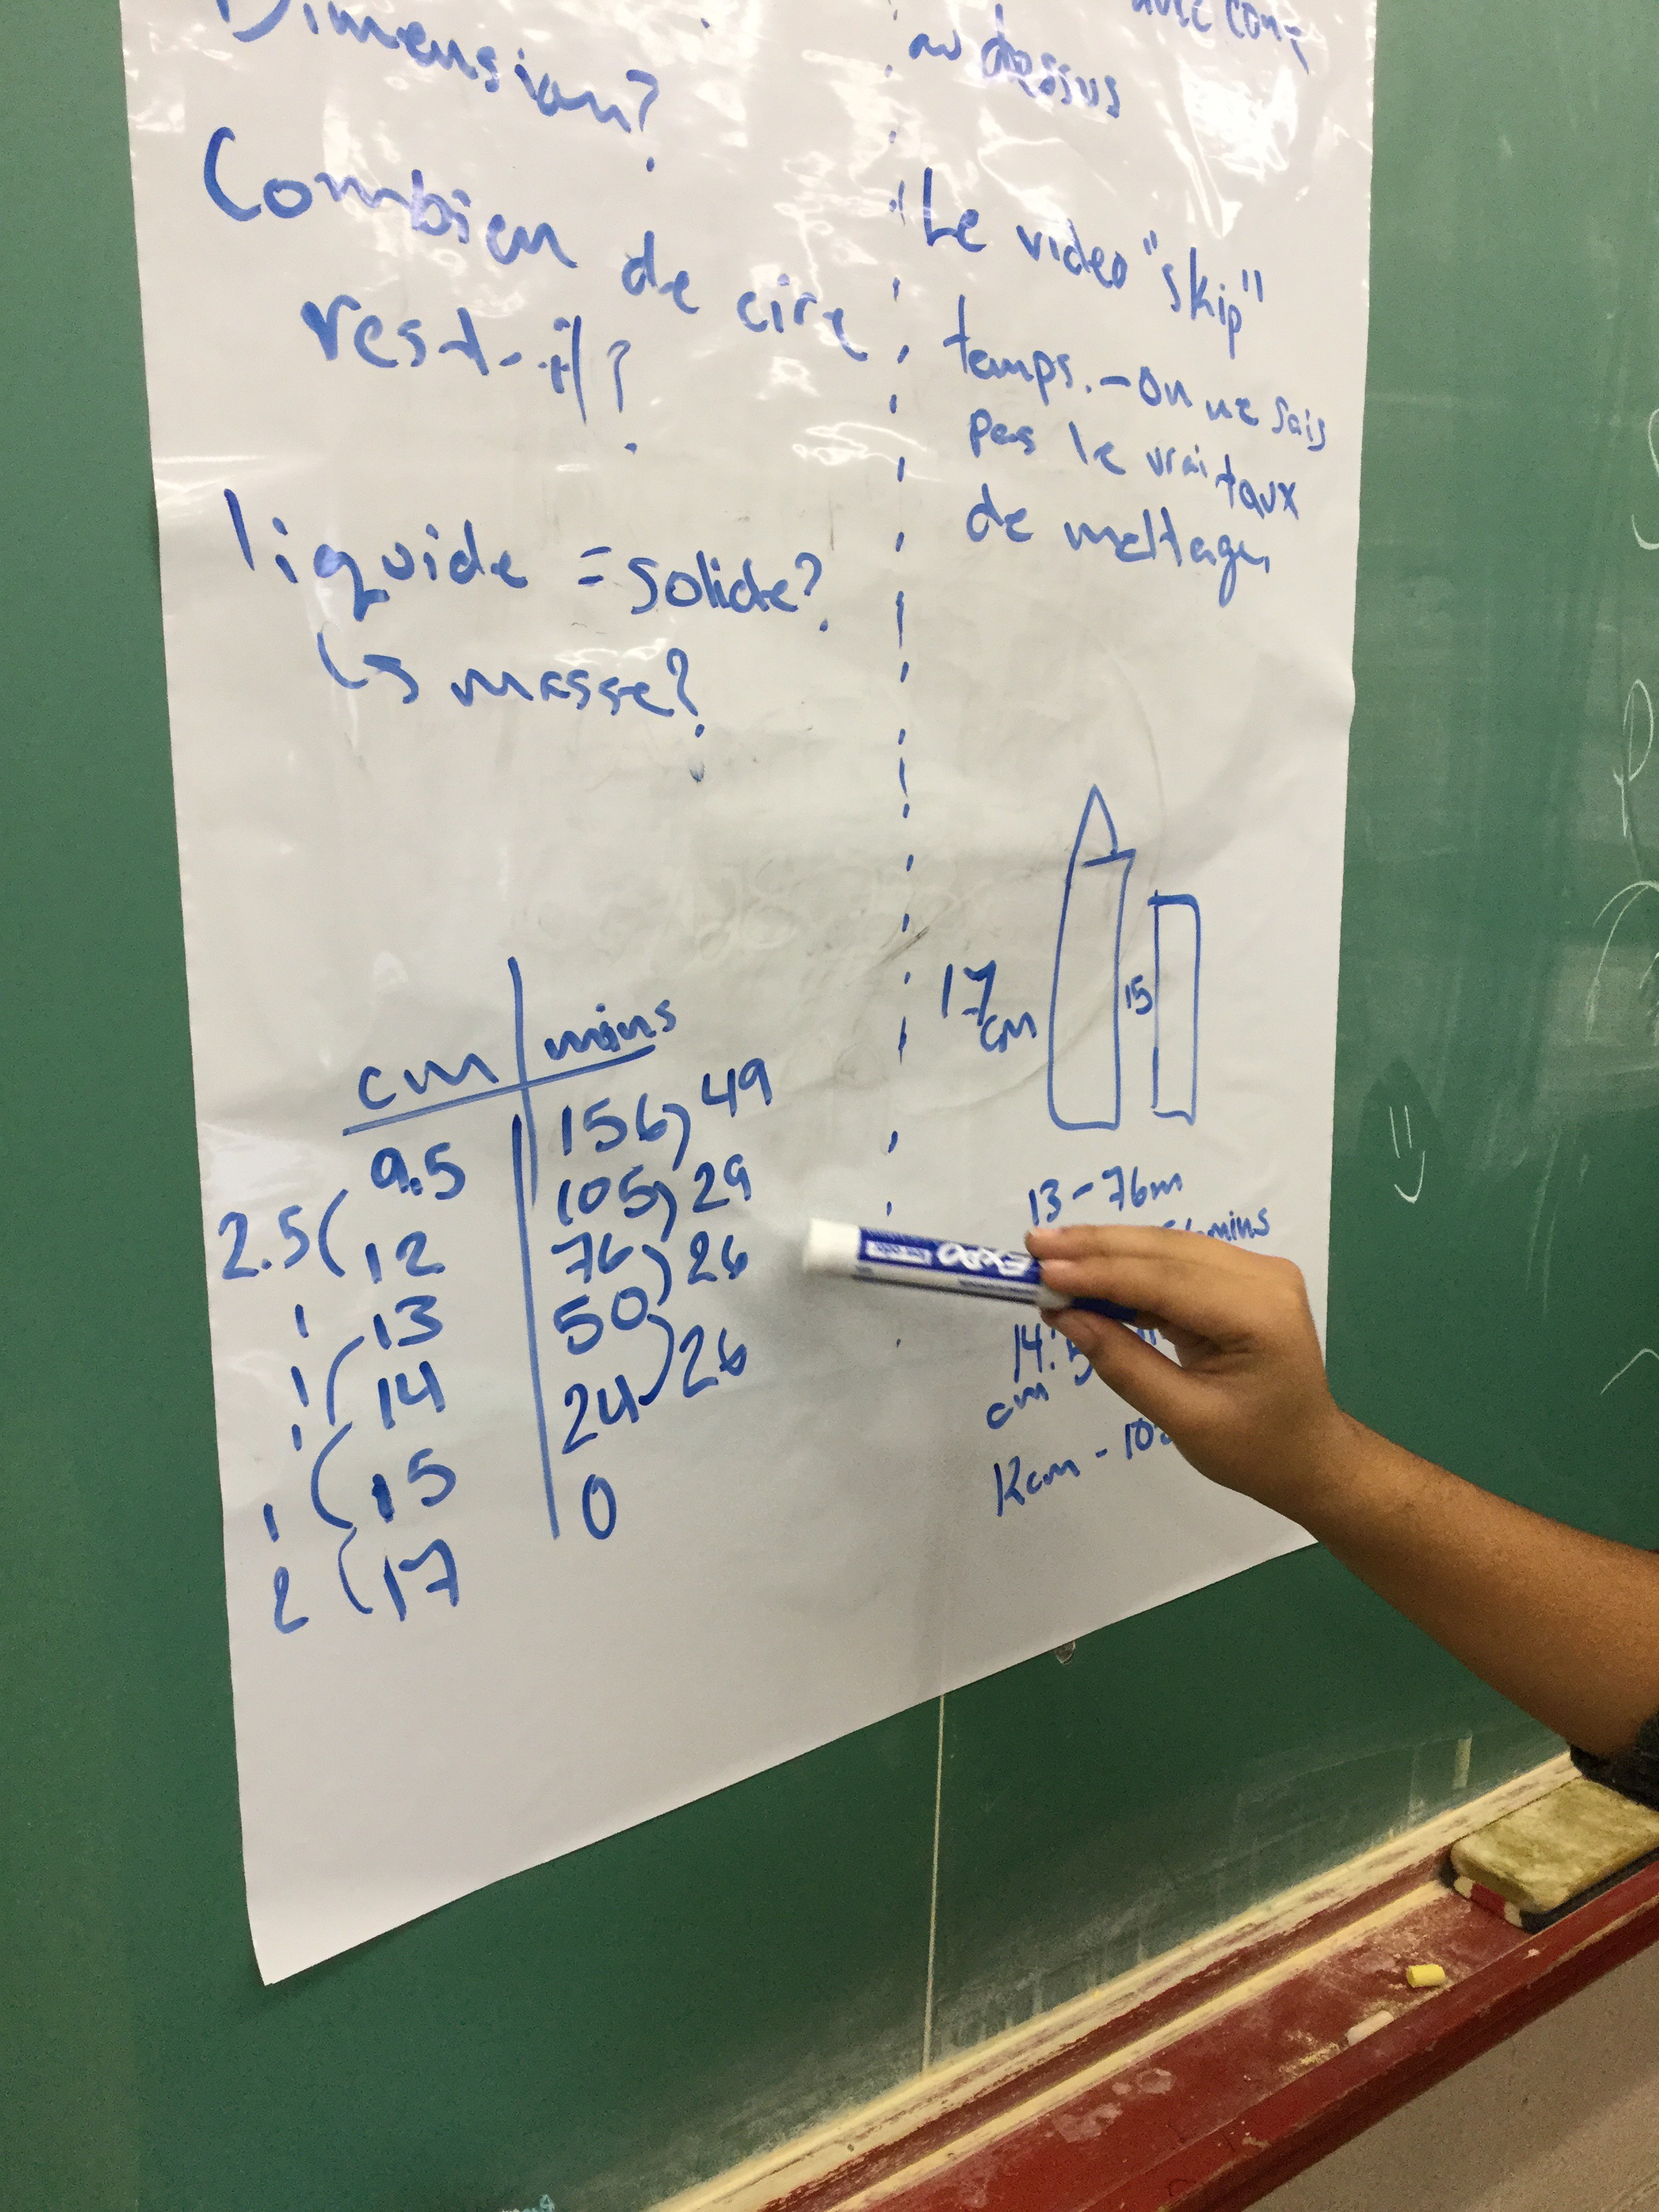 Dimension?
Combien de cire
rest-il?
liquide = solide?
↳ masse?
au dessus
Le video "skip"
temps. - on ne sais
pas le vrai taux
de meltage
17 cm
15
cm | mins
9.5 | 156 ) 49
2.5 ( 12 | 105 ) 29
1 13 | 76 ) 26
1 ( 14 | 50 ) 26
1 ( 15 | 24
2 ( 17 | 0
13 - 76m
mins
14.5
cm
12cm - 10
EXPO